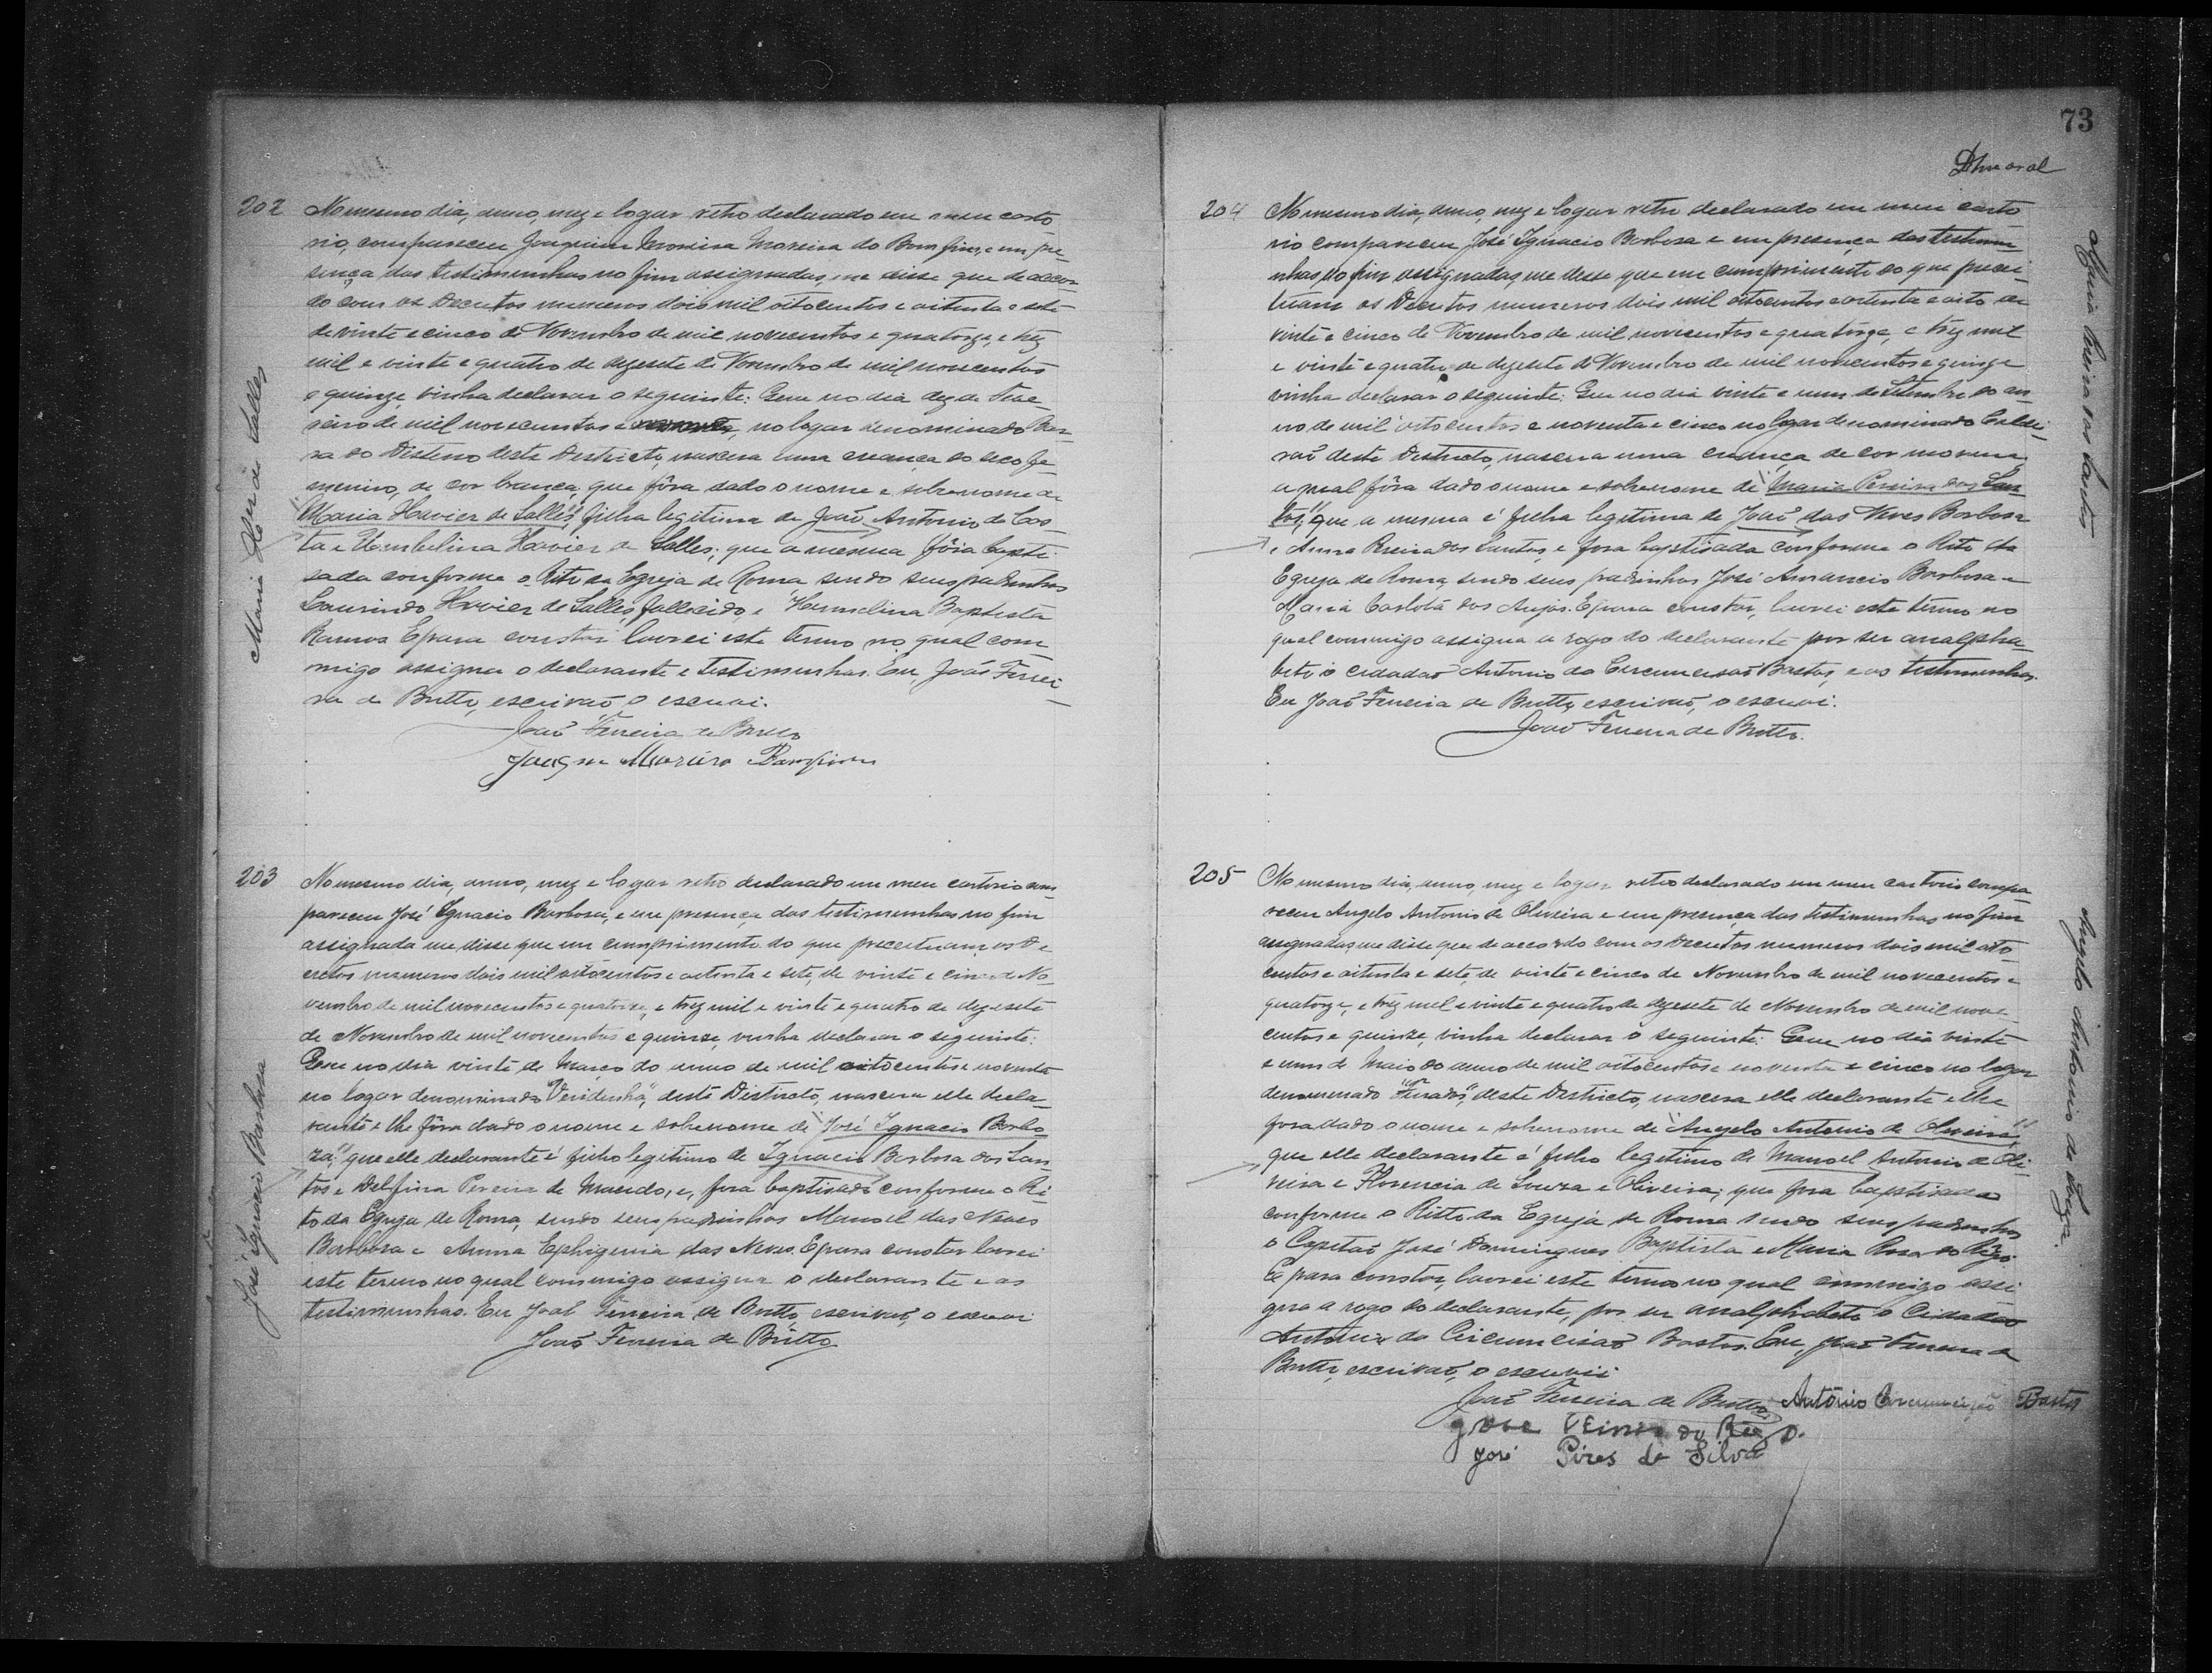 202
No mesmo dia, anno, mez e logar retro declarado em meu carto
rio, compareceu Joaquim Moreira do Bomfim, e em pre
sença das testimunhas no fim assignadas, me disse que de accor
do com os Decretos numeros dois mil oitocentos e oitenta e sete
de vinte e cinco de Novembro de mil novecentos e quatorze, e trez
mil e vinte e quatro de dezesete de Novembro de mil novecentos
e quinze, vinha declarar o seguinte: Que no dia dez de
de mil novecentos e no logar denominado
do Desterro deste Districto, nascera uma creança do sexo fe
menino, de cor branca, que fôra dado o nome e sobrenome de
"Maria Xavier de Salles", filha legitima de João Antonio da Cos
ta e Umbelina Xavier de Salles; que a mesma fôra bapti
sada conforme o Rito da Egreja de Roma sendo seus padrinhos
Laurindo Xavier de Salles, fallecido, e Hermelina Baptista
Ramos. E para constar lavrei este termo no qual com
migo assigna o declarante e testimunhas. Eu, João Ferrei
ra de Britto, escrivão o escrevi.
João Ferreira de Britto
Moreira Bomfim
Maria Xer de Salles
203
No mesmo dia, anno, mez e logar retro declarado em meu cartorio com
pareceu José Ignacio Barbosa, e em presença das testimunhas no fim
assignada me disse que em cumprimento do que preceituam os De
cretos numeros dois mil oitocentos e oitenta e sete, de vinte e cinco de No
vembro de mil novecentos e quatorze, e trez mil e vinte e quatro de dezesete
de Novembro de mil novecentos e quinze, vinha declarar o seguinte:
Que no dia vinte de Março do anno de mil oitocentos e noventa
no logar denominado deste Districto, nascera elle decla
rante e lhe fôra dado o nome e sobrenome de "José Ignacio Barbo
za", que elle declarante é filho legitimo de Ignacio Barbosa dos San
tos e Delfina Pereira de Macedo, e, fora baptisado conforme o Ri
to da Egreja de Roma, sendo seus padrinhos Manoel das Neves
Barbosa e Anna Ephigenia das Neves. E para constar lavrei
este termo no qual commigo assigna o declarante e as
testimunhas. Eu João Ferreira de Britto escrivão, o escrevi
João Ferreira de Britto
José Ignacio Barbosa
73
204
No mesmo dia, anno, mez e logar retro declarado em meu carto
rio compareceu José Ignacio Barbosa e em presença das testimu
nhas, no fim assignadas, me disse que em cumprimento do que precei
tuam os Decretos numeros dois mil oitocentos e oitenta e oito de
vinte e cinco de Novembro de mil novecentos e quatorze, e trez mil
e vinte e quatro de dezesete de Novembro de mil novecentos e quinze
vinha declarar o seguinte: Que no dia vinte e um de Setembro do an
no de mil oitocentos e noventa e cinco no logar denominado Caldei
rão deste Districto, nascera uma creança de cor morena
a qual fôra dado o nome e sobrenome de "Maria Pereira dos San
tos", que a mesma é filha legitima de João das Neves Barbosa
e Anna Pereira dos Santos, e fora baptisada conforme o Rito da
Egreja de Roma, sendo seus padrinhos José Amancio Barbosa e
Maria Carlota dos Anjos. E para constar, lavrei este termo no
qual commigo assigna a rogo do declarante por ser analpha
beto o cidadão Antonio da Circumcisão Bastos, e as testimunhas.
Eu João Ferreira de Britto, escrivão, o escrevi.
João Ferreira de Britto.
Maria Pereira dos Santos
205
No mesmo dia, anno, mez e logar retro declarado em meu cartorio compa
receu Angelo Antonio de Oliveira e em presença das testimunhas no fim
assignadas, me disse que de accordo com os Decretos numeros dois mil oito
centos e oitenta e sete, de vinte e cinco de Novembro de mil novecentos e
quatorze, e trez mil e vinte e quatro de dezesete de Novembro de mil nove
centos e quinze, vinha declarar o seguinte: Que no dia vinte
e um de Maio do anno de mil oitocentos e noventa e cinco no logar
denominado deste Districto, nascera elle declarante e lhe
fora dado o nome e sobrenome de "Angelo Antonio de Oliveira",
que elle declarante é filho legitimo de Manoel Antonio de Oli
veira e Florencia de Souza e Oliveira; que fora baptisado
conforme o Ritto da Egreja de Roma sendo seus padrinhos
o Capitão José Domingues Baptista e Maria Rosa do Rêgo.
E para constar, lavrei este termo no qual commigo assi
gna a rogo do declarante, por ser analphabeto o Cidadão
Antonio da Circumcisão Bastos. Eu, João Ferreira de
Britto, escrivão, o escrevi
João Ferreira de Britto Antônio Circumcisão Bastos
do Rêgo.
José Pires da Silva
Angelo Antonio de